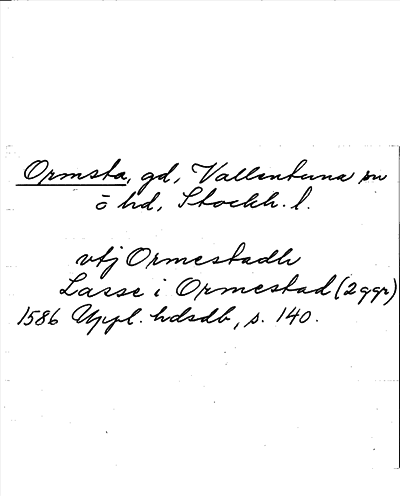 Ormsta, gd, Vallentuna sn
ö hd, Stockh. l.
vtj Ormestadh
Lasse i Ormestad (2 ggr)
1586 Uppl. hdsdb, s. 140.